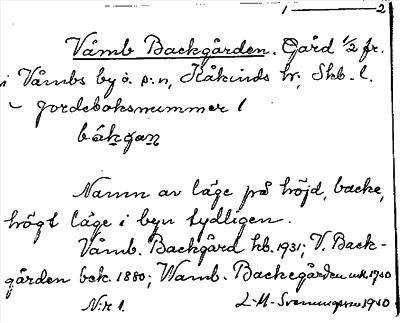 1 — 2
Våmb Backgården. Gård 1/2 fr.
i Våmbs by ö. p:n, Kåkinds hr, Skb. l.
~ jordeboksnummer 1
båkgan
Namn av läge på höjd, backe,
högt läge i byn tydligen.
Våmb. Backgård kb. 1931; V. Back-
gården bek. 1880; Wamb. Backegården 1740
N:r 1. L-M-Svenungsson 1940